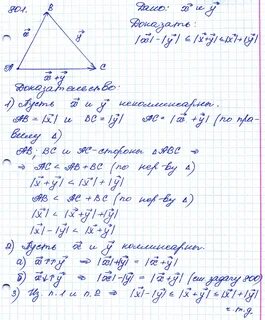 801.
Дано: x⃗ и y⃗
Доказать:
|x⃗| - |y⃗| ≤ |x⃗+y⃗| ≤ |x⃗|+|y⃗|
B
x⃗
y⃗
A
x⃗+y⃗
C
Доказательство:
1) Пусть x⃗ и y⃗ неколлинеарны.
AB = |x⃗| и BC = |y⃗| AC = |x⃗ + y⃗| (по пра-
вилу Δ)
AB, BC и AC - стороны ΔABC ⇒
⇒ AC < AB + BC (по нер-ву Δ)
|x⃗ + y⃗| < |x⃗| + |y⃗|
AB < AC + BC (по нер-ву Δ)
|x⃗| < |x⃗+y⃗| + |y⃗|
|x⃗| - |y⃗| < |x⃗+y⃗|
2) Пусть x⃗ и y⃗ коллинеарны.
а) x⃗↑↑y⃗ ⇒ |x⃗|+|y⃗| = |x⃗+y⃗|
б) x⃗↑↓y⃗ ⇒ |x⃗|-|y⃗| = |x⃗+y⃗| (см задачу 800)
3) Из п.1 и п.2 ⇒ |x⃗|-|y⃗| ≤ |x⃗+y⃗| ≤ |x⃗|+|y⃗|
ч.т.д.